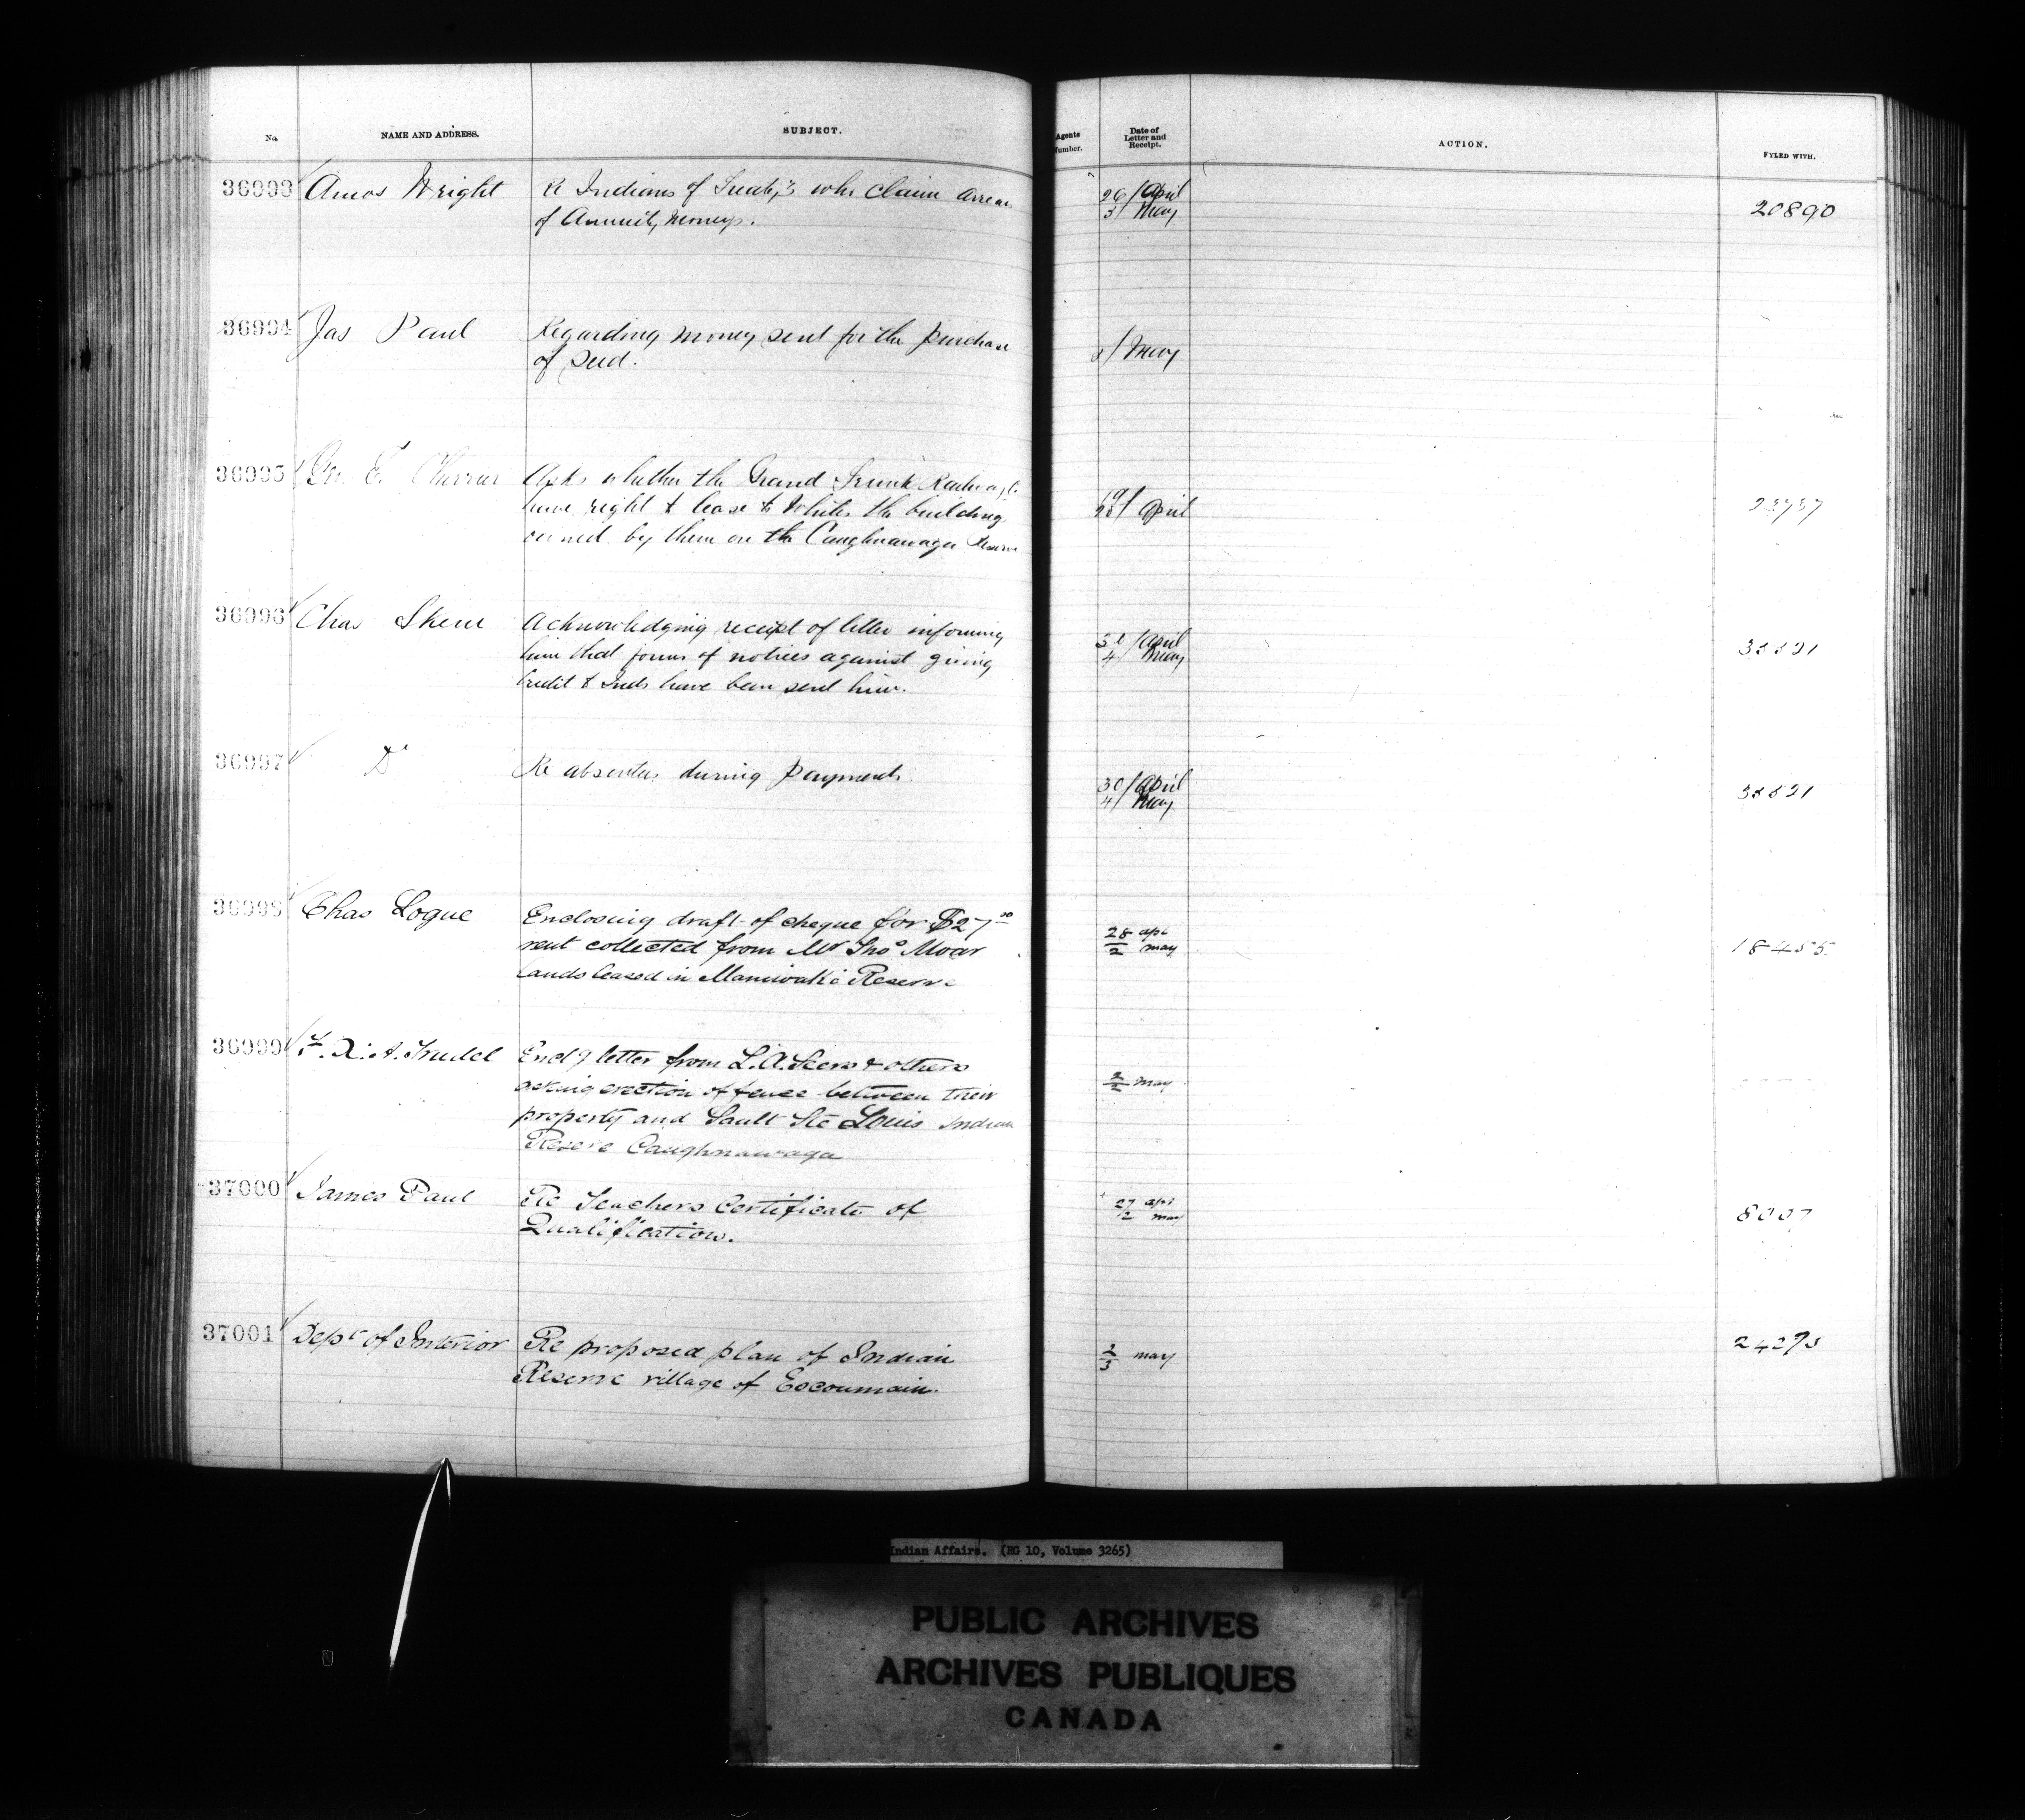 No. NAME AND ADDRESS. SUBJECT. Agents Number. Date of Letter and Receipt. ACTION. FYLED WITH.
36993 Amos Wright Re Indians of Treaty 3 who claim arrears 26/April 20890
of Annuity moneys. 3/May
36994 Jas Paul Regarding money sent for the purchase
of seed. May
36995 E. Asks whether the Grand Trunk Railway Co. April
have right to lease to Whites the building
owned by them on the Caughnawaga Reserve
36996 Chas Skene Acknowledging receipt of letter informing 30/April
him that forms of notices against giving 4/May
credit to Inds have been sent him.
36997 Do Re absentees during payments. 30/April
4/May
36998 Chas Logue Enclosing draft of cheque for $27.00 28 apl
rent collected from Mr Thos Moar 2 may 18455
lands leased in Maniwaki Reserve
36999 F. X. A. Trudel Encl'g letter from L. A. & others
asking erection of fence between their 2/2 may
property and Sault Ste Louis Indian
Reserve Caughnawaga
37000 James Paul Re Teachers Certificate of 27 apl
Qualification. 2 may 8007
37001 Dept of Interior Re proposed plan of Indian 2/3 may
Reserve village of Escoumain.
Indian Affairs. (RG 10, Volume 3265)
PUBLIC ARCHIVES
ARCHIVES PUBLIQUES
CANADA